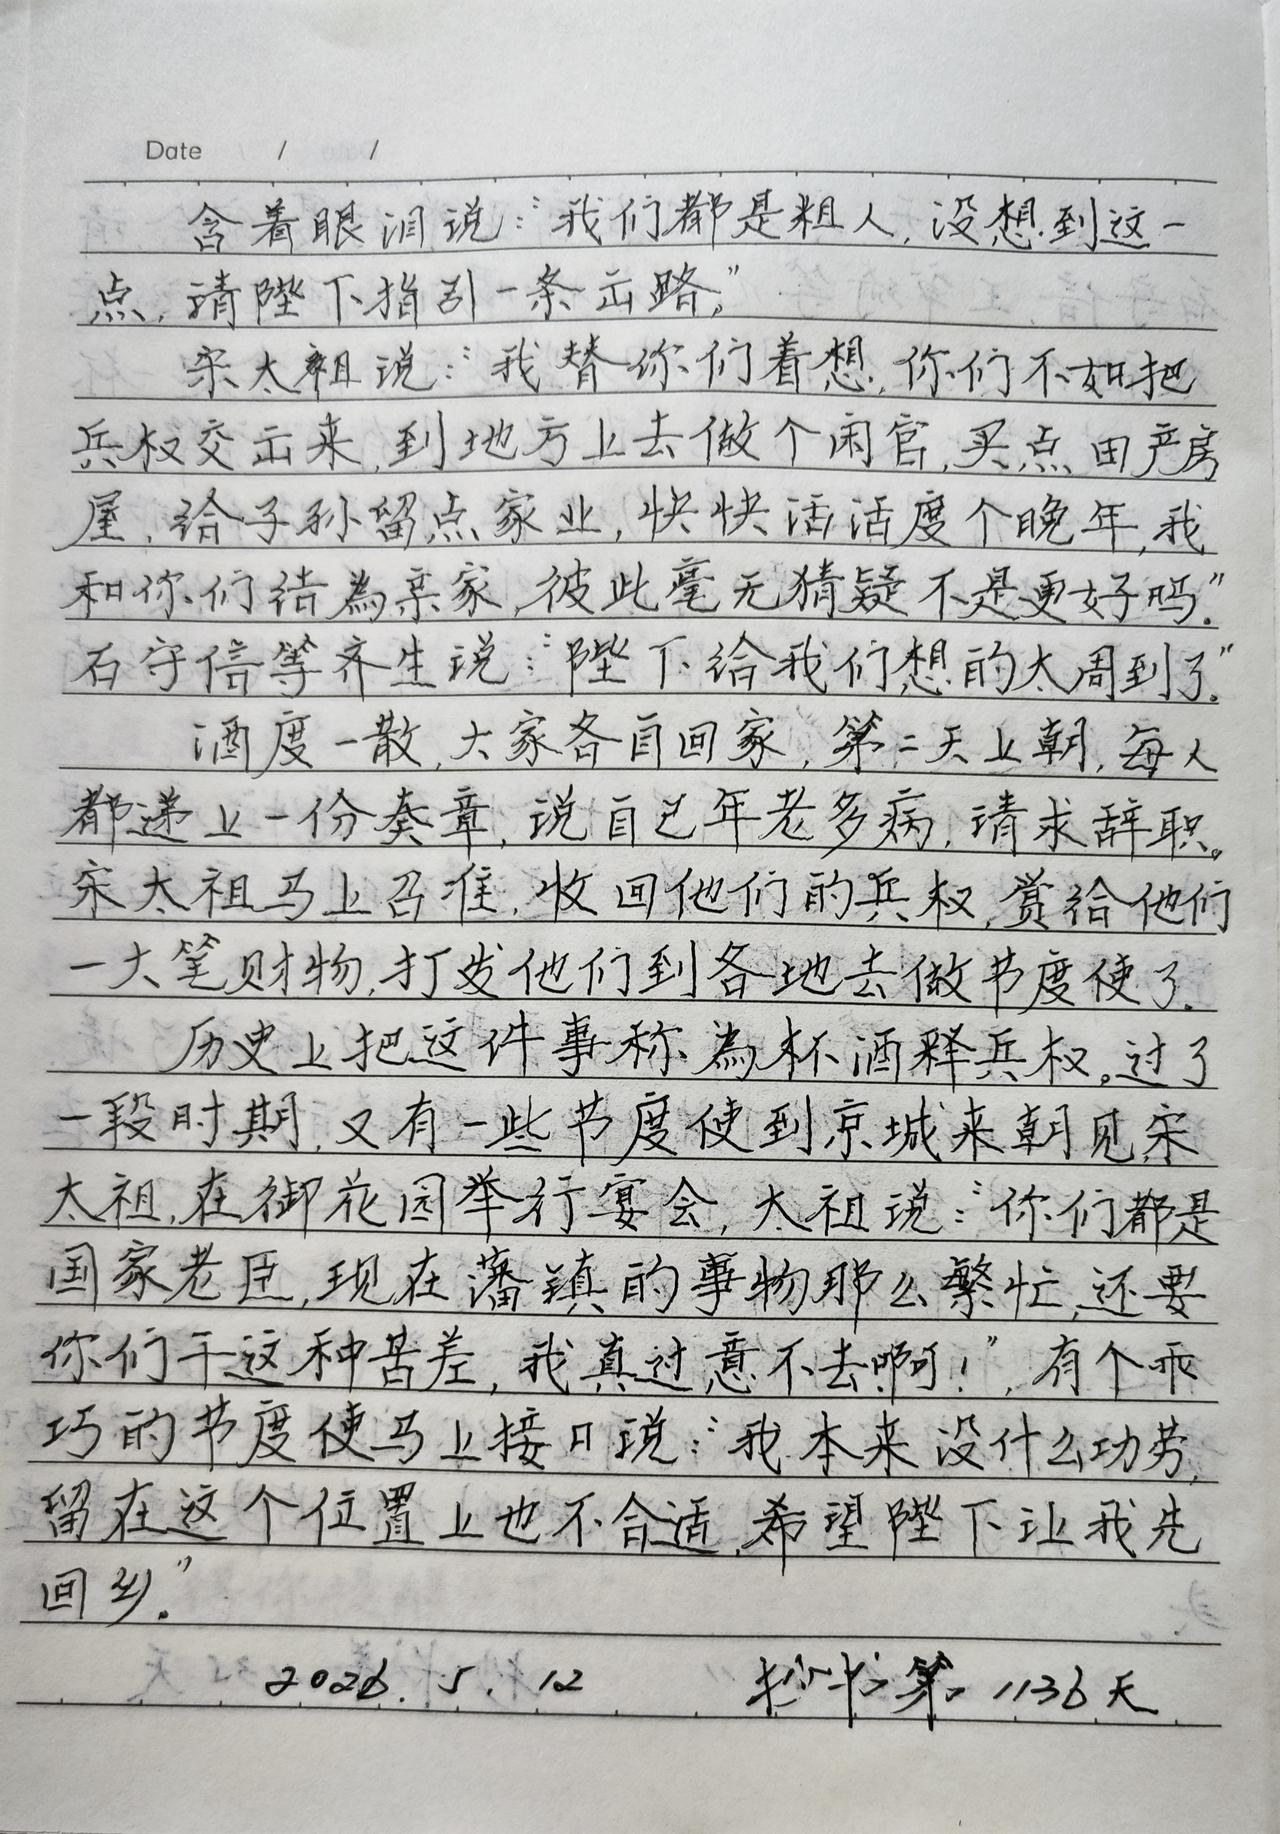 Date / /
含着眼泪说:“我们都是粗人,没想到这一
点,请陛下指引一条出路。”
宋太祖说:“我替你们着想,你们不如把
兵权交出来,到地方上去做个闲官,买点田产房
屋,给子孙留点家业,快快活活度个晚年,我
和你们结為亲家,彼此毫无猜疑不是更好吗。”
石守信等齐生说:“陛下给我们想的太周到了。”
酒度一散,大家各自回家,第二天上朝,每人
都递上一份奏章,说自己年老多病,请求辞职。
宋太祖马上召准,收回他们的兵权,赏给他们
一大笔财物,打发他们到各地去做节度使了.
历史上把这件事称為杯酒释兵权。过了
一段时期,又有一些节度使到京城来朝见宋
太祖,在御花园举行宴会,太祖说:“你们都是
国家老臣,现在藩镇的事物那么繁忙,还要
你们干这种苦差,我真过意不去啊!”,有个乖
巧的节度使马上接口说:“我本来没什么功劳,
留在这个位置上也不合适,希望陛下让我先
回乡。”
2026.5.12 抄书第1136天